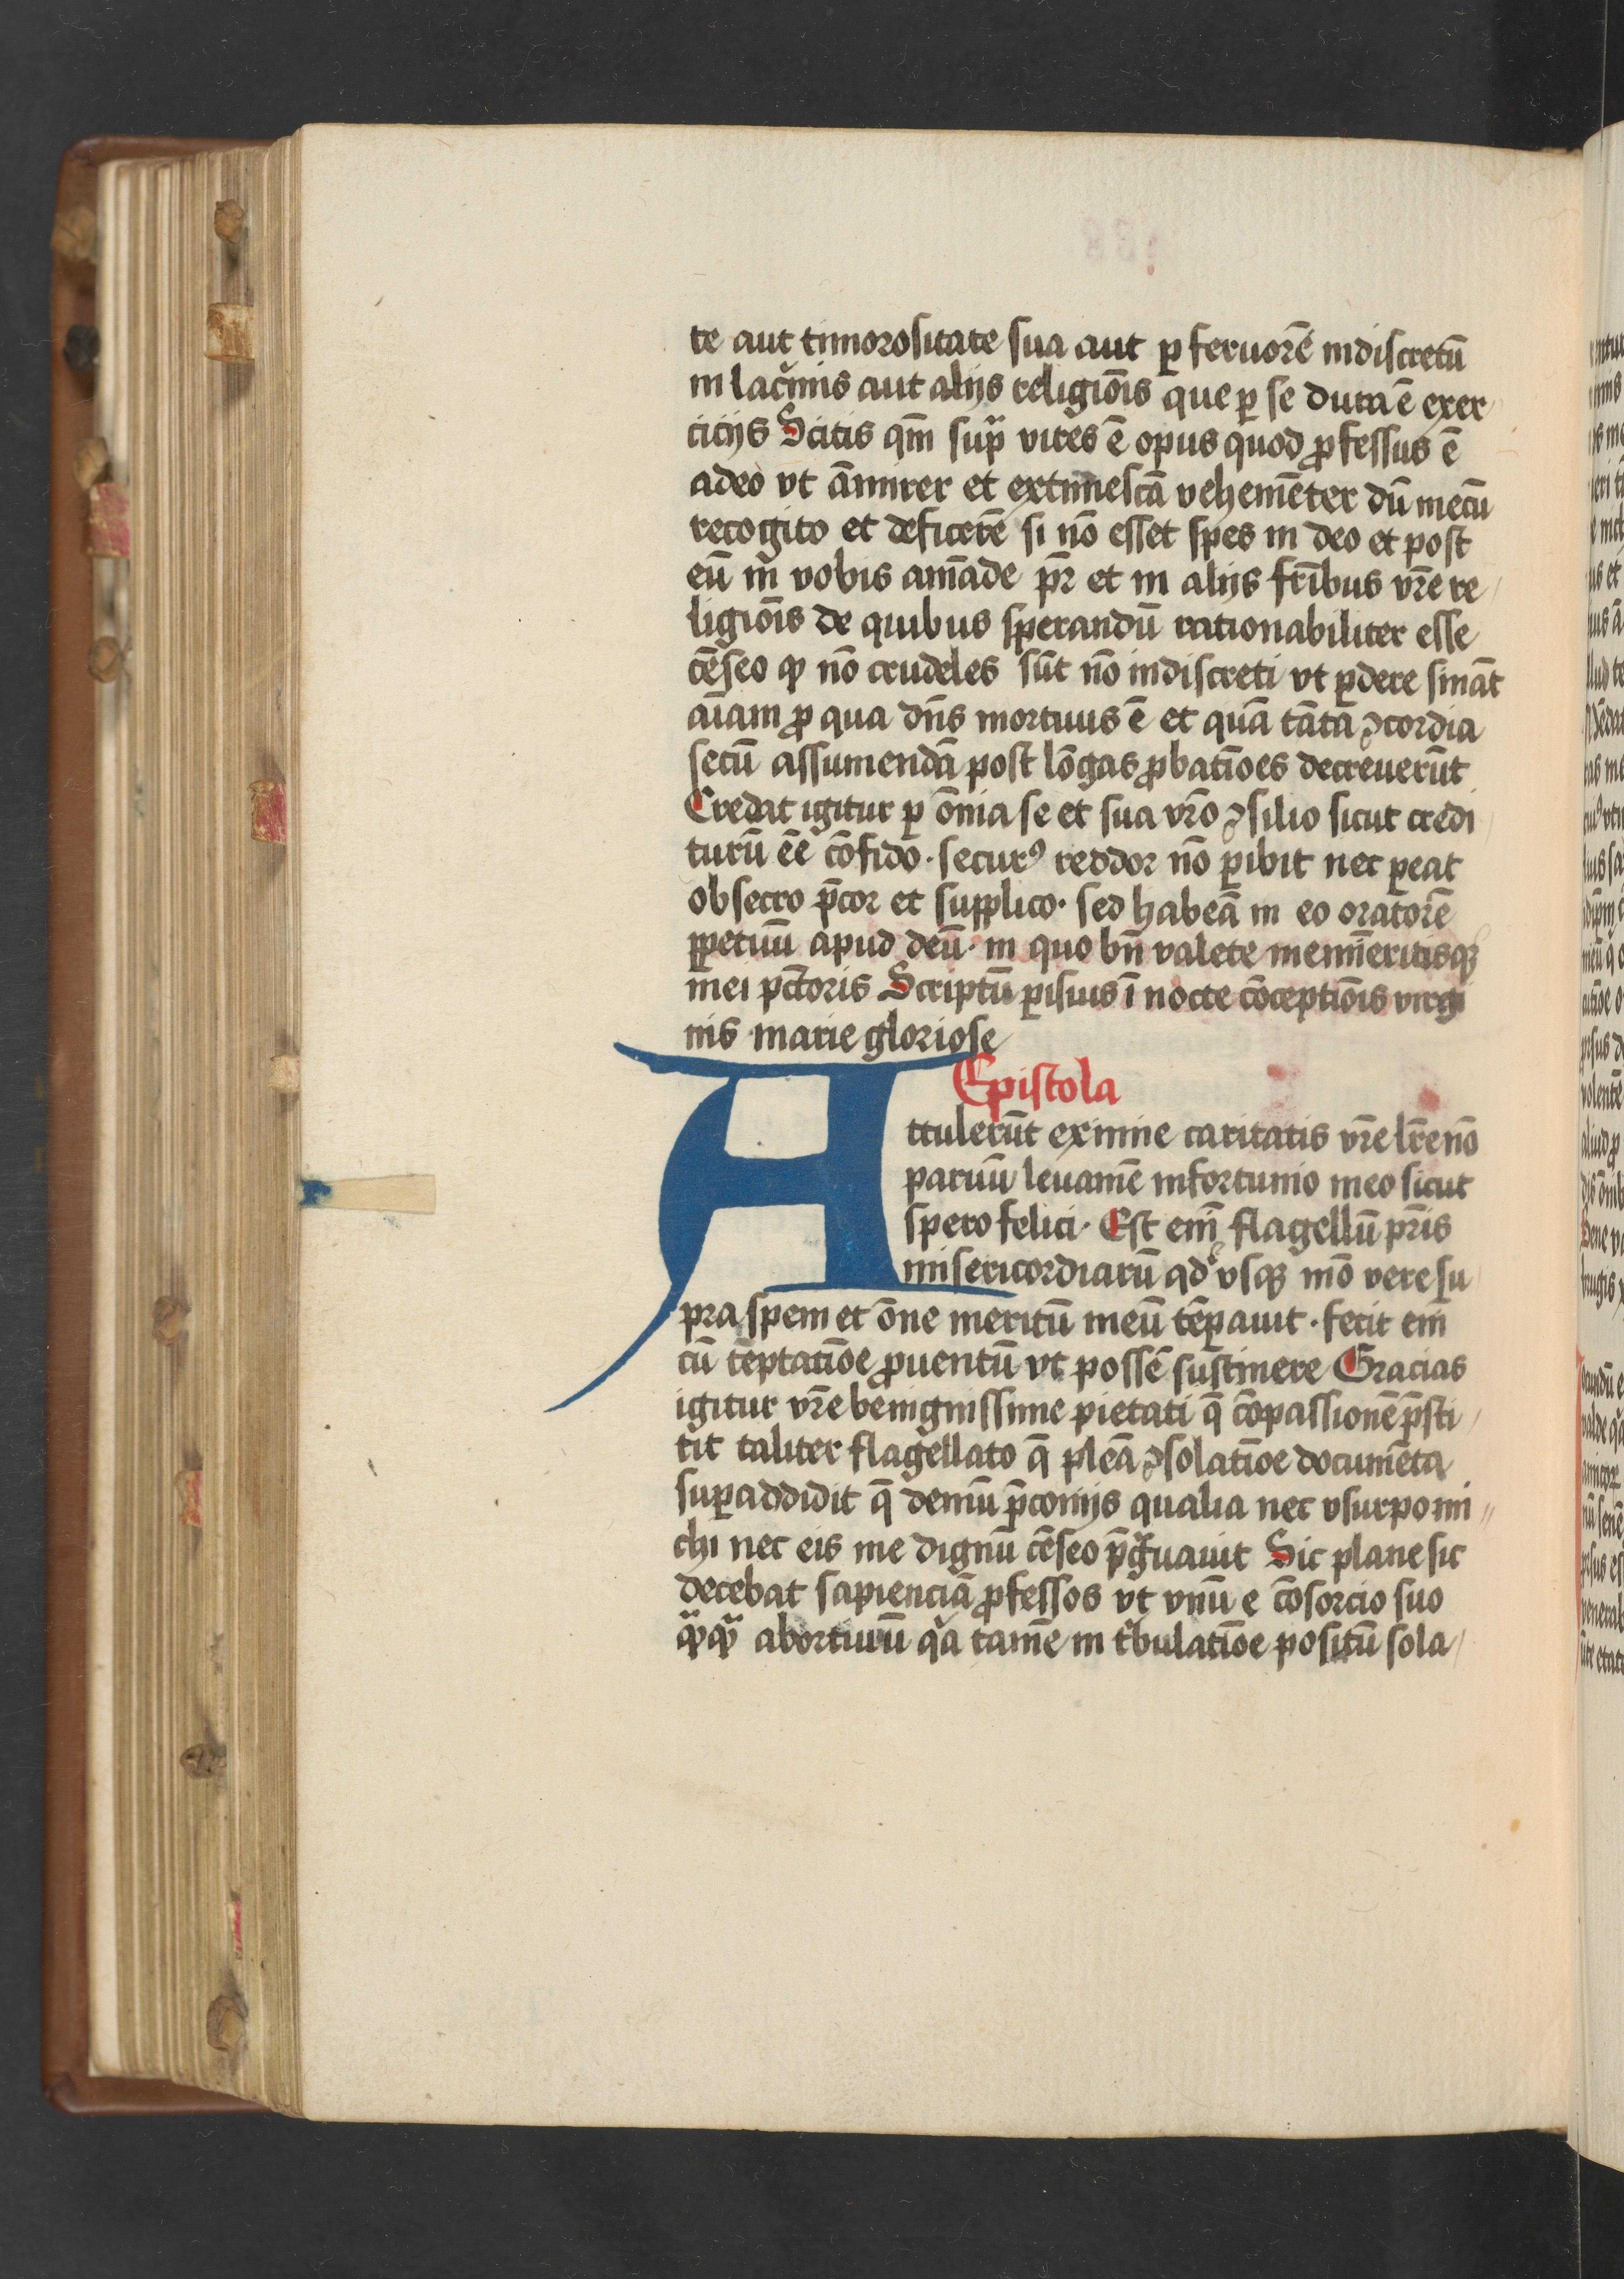 te aut timorositate sua aut ꝑ feruorē indiscretū
in lac̄mis aut alijs religiōis que ꝑ se dura ē exer
cicijs Scitis qm̄ suꝑ vires ē opus quod ꝓfessus ē
adeo vt āmirer et extimescā vehemēter dū mecū
recogito et deficerē si nō esset spes in deo et post
eū in vobis amāde pr̄ et in alijs fr̄ibus vr̄e re
ligiōis de quibus sperandū rationabiliter esse
cēseo ꝙ nō crudeles sūt nō indiscreti vt ꝑdere sināt
aīam ꝓ qua dn̄s mortuus ē et quā tāta ꝯcordia
secū assumendā post lōgas ꝓbatiōes decreuerūt
Credat igitur ꝑ ōnia se et sua vr̄o ꝯsilio sicut credi
turū ēē cōfido · securꝰ reddor nō ꝑibit nec ꝑeat
obsecro p̄cor et supplico · sed habeā in eo oratorē
ꝑpetuū apud deū · in quo bn̄ valete memīeritisqꝫ
mei pctōris Scriptū ꝑisius ī nocte cōceptiōis virgi
nis marie gloriose
Epistola
Attulerūt eximie caritatis vr̄e lr̄e nō
paruū leuamē infortunio meo sicut
spero felici · Est em̄ flagellū pr̄is
misericordiarū qd̓ vsqꝫ mō vere su
pra spem et ōne meritū meū tēꝑauit · fecit em̄
cū tēptatiōe ꝓuentū vt possē sustinere Gracias
igitur vr̄e benignissime pietati q̄ cōpassionē p̄sti
tit taliter flagellato q̄ pleā ꝯsolatiōe documēta
suꝑaddidit q̄ demū p̄conijs qualia nec vsurpo mi
chi nec eis me dignū cēseo p̄g̃uauit Sic plane sic
decebat sapienciā ꝓfessos vt vnū e cōsorcio suo
qͣꝙͣ abortiuū qͣ tamē in tͥbulatiōe positū sola